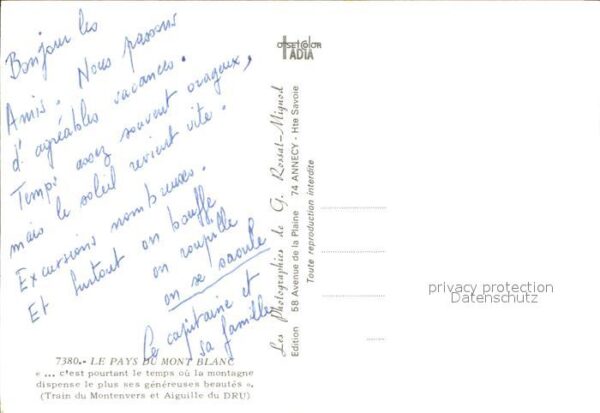 Bonjour les
Amis. Nous passons
d'agréables vacances.
Temps assez souvent orageux,
mais le soleil revient vite.
Excursions nombreuses.
Et surtout on bouffe
on roupille
on se saoule
Le capitaine et
sa famille
7380.- LE PAYS DU MONT BLANC
« ... c'est pourtant le temps où la montagne
dispense le plus ses généreuses beautés ».
(Train du Montenvers et Aiguille du DRU)
OFFSETCOLOR
IADIA
Les Photographies de G. Rossat-Mignod
Edition 58 Avenue de la Plaine 74 ANNECY - Hte Savoie
Toute reproduction interdite
privacy protection
Datenschutz